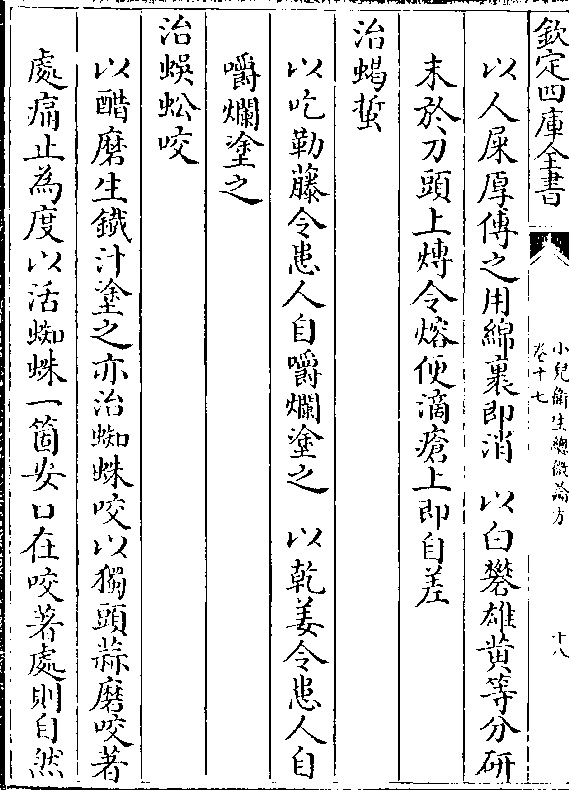 欽定四庫全書
小兒衛生總微論方
卷十七
十八
以人屎厚傅之用綿裹即消　以白礬雄黄等分研
末於刀頭上煿令熔便滴瘡上即自差
治蝎蜇
以吃勒藤令患人自嚼爛塗之　以乾姜令患人自
嚼爛塗之
治蜈蚣咬
以醋磨生鐵汁塗之亦治蜘蛛咬以獨頭蒜磨咬著
處痛止為度以活蜘蛛一箇安口在咬著處則自然